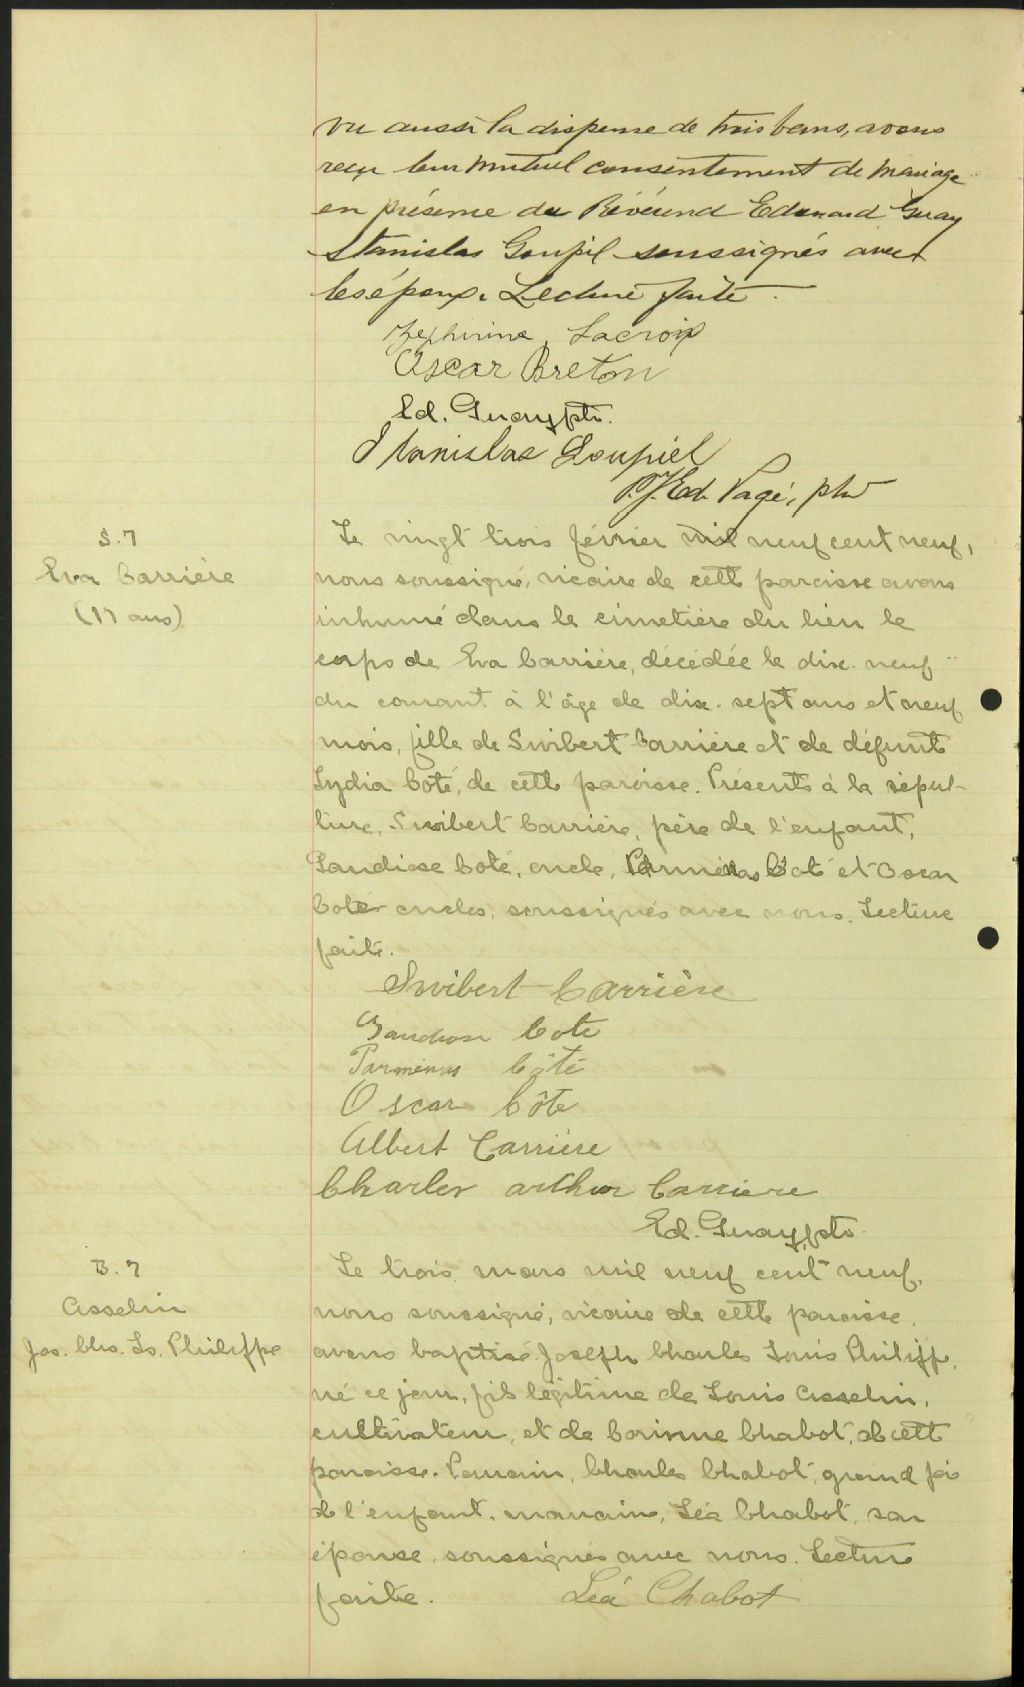 vu aussi la dispense de trois bans, avons
reçu leur mutuel consentement de mariage
en présence du Révérend Edouard Guay
Stanislas Goupil soussignés avec
les époux. Lecture faite.
Zephirine Lacroix
Oscar Breton
Ed. Guay ptr.
Stanislas Goupiel
P.J.Ed. Pagé, ptre
S. 7
Eva Carrière
(17 ans)
Le vingt trois février mil neuf cent neuf,
nous soussigné, vicaire de cette paroisse avons
inhumé dans le cimetière du lieu le
corps de Eva Carrière, décédée le dix-neuf
du courant à l'âge de dix-sept ans et neuf
mois, fille de Swibert Carrière et de défunte
Lydia Coté, de cette paroisse. Présents à la sépul-
ture, Swibert Carrière, père de l'enfant,
Gaudiose Coté, oncle, Parménas Coté et Oscar
Coté oncles, soussignés avec nous. Lecture
faite.
Swibert Carrière
Gaudiose Cote
Parménas Côté
Oscar Côte
Albert Carrière
Charles arthur Carriere
Ed. Guay, ptr.
B. 7
Asselin
Jos. Chs. Ls. Philippe
Le trois mars mil neuf cent neuf,
nous soussigné, vicaire de cette paroisse,
avons baptisé Joseph Charles Louis Philippe,
né ce jour, fils légitime de Louis Asselin,
cultivateur, et de Corinne Chabot, de cette
paroisse. Parrain, Charles Chabot, grand père
de l'enfant, marraine, Léa Chabot, son
épouse, soussignés avec nous. Lecture
faite. Léa Chabot